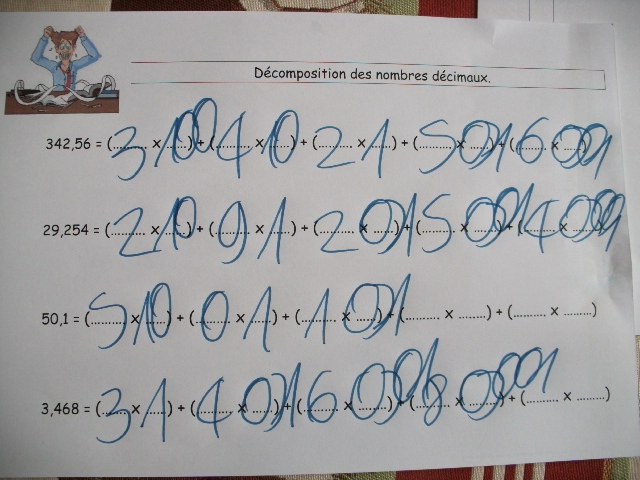 Décomposition des nombres décimaux.
342,56 = (3 × 100) + (4 × 10) + (2 × 1) + (5 × 0,1) + (6 × 0,01)
29,254 = (2 × 10) + (9 × 1) + (2 × 0,1) + (5 × 0,01) + (4 × 0,001)
50,1 = (5 × 10) + (0 × 1) + (1 × 0,1) + (......... × .......) + (......... × ........)
3,468 = (3 × 1) + (4 × 0,1) + (6 × 0,01) + (8 × 0,001) + (......... × ........)